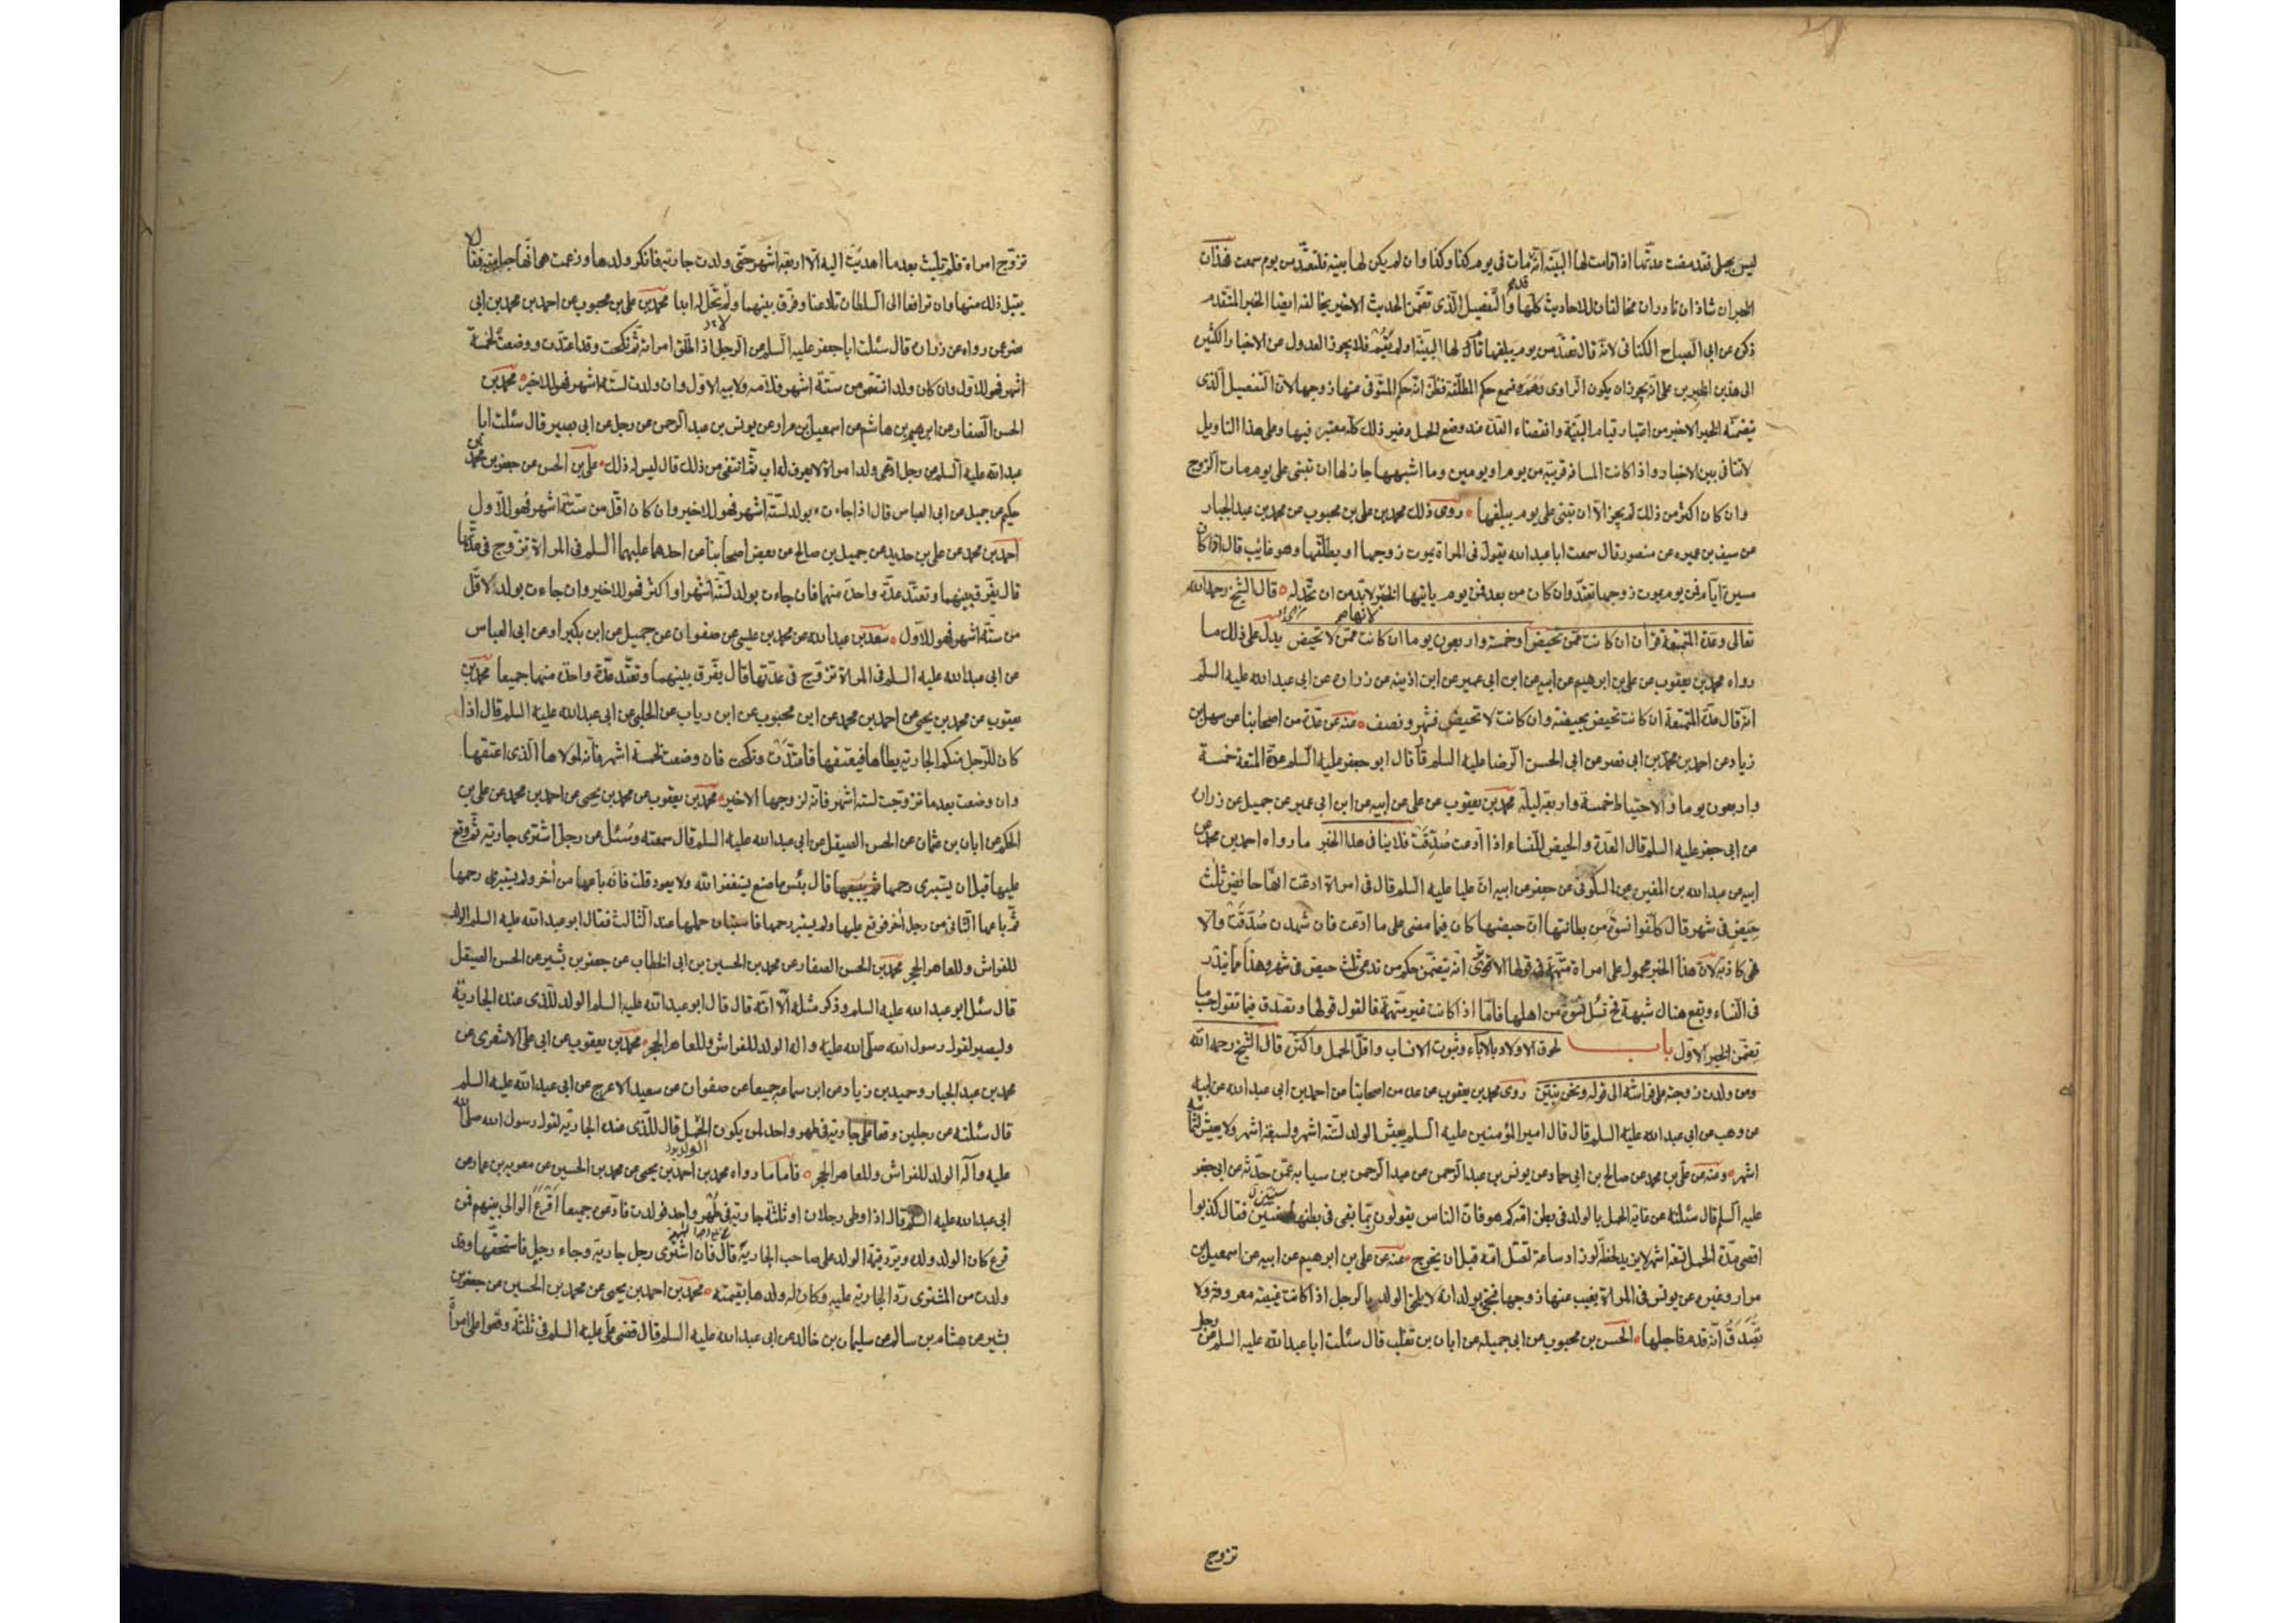 ليس يحل فقد مضت عدتها اذا قامت لها البينة انه مات فى يوم كذا وكذا وان لم يكن لها بينة فلتعتد من يوم سمعت فهذان
الخبران شاذان نادران مخالفان للاحاديث كلها والتفصيل الذى تضمن الحديث الاخير يخالفه ايضا الخبر المتقدم
ذكره عن ابى الصباح الكنانى لانه قال تعتد من يوم يبلغها قامت لها البينة او لم تقم فلا يجوز العدول عن الاخبار الكثيرة
الى هذين الخبرين على انه يجوز ان يكون الراوى وهم فسمع حكم المطلقة فظن انه حكم المتوفى عنها زوجها لان التفصيل الذى
يتضمنه الخبر الاخير من اعتبار قيام البينة وانقضاء العدة عند وضع الحمل وغير ذلك كله معتبر فيها وعلى هذا التاويل
لا تنافى بين الاخبار واذا كانت المسافة قريبة من يوم او يومين وما اشبهها جاز لها ان تبنى على يوم مات الزوج
وان كان اكثر من ذلك لم يجز الا ان تبنى على يوم يبلغها روى ذلك محمد بن على بن محبوب عن محمد بن عبد الجبار
عن سيف بن عميره عن منصور قال سمعت ابا عبد الله يقول فى المراة يموت زوجها او يطلقها وهو غائب قال اذا كان
مسيرة ايام فمن يوم يموت زوجها تعتد وان كان من بعد فمن يوم ياتيها الخبر لابد من ان تحد له قال الشيخ رحمه الله
تعالى وعدة المتمتعة قرآن ان كانت ممن تحيض او خمسة واربعون يوما ان كانت ممن لا تحيض يدل على ذلك ما
رواه محمد بن يعقوب عن على بن ابرهيم عن ابيه عن ابن ابى عمير عن ابن اذينه عن زرارة عن ابى عبد الله عليه السلم
انه قال عدة المتمتعة ان كانت تحيض بحيضة وان كانت لا تحيض فشهر ونصف عنه عن عدة من اصحابنا عن سهل بن
زياد عن احمد بن محمد بن ابى نصر عن ابى الحسن الرضا عليه السلم قال قال ابو جعفر عليه السلم عدة المتعة خمسة
واربعون يوما والاحتياط خمسة واربعة ليلة محمد بن يعقوب عن على عن ابيه عن ابن ابى عمير عن جميل عن زرارة
عن ابى جعفر عليه السلم قال العدة والحيض للنساء اذا ادعت صدقت فلا ينافى هذا الخبر ما رواه احمد بن محمد عن
ابيه عن عبد الله بن المغيرة عن السكونى عن جعفر عن ابيه ان عليا عليه السلم قال فى امراة ادعت انها حاضت ثلث
حيض فى شهر قال كلفوا نسوة من بطانتها ان حيضها كان فيما مضى على ما ادعت فان شهدن صدقت والا
فهى كاذبة لان هذا الخبر محمول على امراة متهمة فى قولها الا ترى انه يتضمن حكم من تدعى ثلث حيض فى شهر وهذا مما يندر
فى النساء ويقع هناك شبهة فحينئذ تسئل نسوة من اهلها فاما اذا كانت غير متهمة فالقول قولها وتصدق فيما تقول حسب ما
تضمن الخبر الاول باب لحوق الاولاد بالاباء وثبوت الانساب واقل الحمل واكثره قال الشيخ رحمه الله
ومن ولدت زوجته على فراشه الى قوله ونحن نبين روى محمد بن يعقوب عن عدة من اصحابنا عن احمد بن ابى عبد الله عن ابيه
عن وهب عن ابى عبد الله عليه السلم قال قال امير المؤمنين عليه السلم يعيش الولد لستة اشهر ولسبعة اشهر ولا يعيش لثمانية
اشهر ومنه عن على بن محمد عن صالح بن ابى حماد عن يونس بن عبد الرحمن عن عبد الرحمن بن سيابه عمن حدثه عن ابى جعفر
عليه السلم قال سئلته عن غاية الحمل بالولد فى بطن امه كم هو فان الناس يقولون ربما بقى فى بطنها سنين فقال كذبوا
اقصى مدة الحمل تسعة اشهر لا يزيد لحظة لو زاد ساعة لقتل امه قبل ان يخرج عنه عن على بن ابرهيم عن ابيه عن اسمعيل بن
مرار وغيره عن يونس فى المراة يغيب عنها زوجها فتجئ بولد انه لا يلحق الولد بالرجل اذا كانت غيبته معروفة ولا
تصدق انه قدم فاحبلها الحسن بن محبوب عن ابى جميلة عن ابان بن تغلب قال سئلت ابا عبد الله عليه السلم عن رجل
تزوج
تزوج امراة فلم تلبث بعد ما اهديت اليه الا اربعة اشهر حتى ولدت جارية فانكر ولدها وزعمت هى انها حبلت منه فقال لا
يقبل ذلك منها وان ترافعا الى السلطان تلاعنا وفرق بينهما ولم تحل له ابدا محمد بن على بن محبوب عن احمد بن محمد بن ابى
نصر عن رواه عن زرارة قال سئلت ابا جعفر عليه السلم عن الرجل اذا طلق امراته ثم نكحت وقد اعتدت ووضعت لخمسة
اشهر فهو للاول وان كان ولد انقص من ستة اشهر فلامه ولابيه الاول وان ولدت لستة اشهر فهو للاخير محمد بن
الحسن الصفار عن ابرهيم بن هاشم عن اسمعيل بن مرار عن يونس بن عبد الرحمن عن رجل عن ابى بصير قال سئلت ابا
عبد الله عليه السلم عن رجل ادعى ولد امراة لا يعرف له اب ثم انتفى من ذلك قال ليس له ذلك على بن الحسن عن جعفر بن محمد بن
حكيم عن جميل عن ابى العباس قال اذا جاءت بولد لستة اشهر فهو للاخير وان كان اقل من ستة اشهر فهو للاول
احمد بن محمد عن على بن حديد عن جميل بن صالح عن بعض اصحابنا عن احدهما عليهما السلم فى المراة تزوج فى عدتها
قال يفرق بينهما وتعتد عدة واحدة منهما فان جاءت بولد لستة اشهر او اكثر فهو للاخير وان جاءت بولد لاقل
من ستة اشهر فهو للاول سعد بن عبد الله عن محمد بن عيسى عن صفوان عن جميل عن ابن بكير او عن ابى العباس
عن ابى عبد الله عليه السلم فى المراة تزوج فى عدتها قال يفرق بينهما وتعتد عدة واحدة منهما جميعا محمد بن
يعقوب عن محمد بن يحيى عن احمد بن محمد عن ابن محبوب عن ابن رياب عن الحلبى عن ابى عبد الله عليه السلم قال اذا
كان للرجل منكم الجارية يطاها فيعتقها فاعتدت ونكحت فان وضعت لخمسة اشهر فانه لمولاها الذى اعتقها
وان وضعت بعد ما تزوجت لستة اشهر فانه لزوجها الاخير محمد بن يعقوب عن محمد بن يحيى عن احمد بن محمد عن على بن
الحكم عن ابان بن عثمان عن الحسن الصيقل عن ابى عبد الله عليه السلم قال سمعته وسئل عن رجل اشترى جارية ثم وقع
عليها قبل ان يستبرى رحمها ثم يبيعها قال بئس ما صنع يستغفر الله ولا يعود قلت فانه باعها من أخر ولم يستبرى رحمها
ثم باعها الثانى من رجل أخر فوقع عليها ولم يستبر رحمها فاستبان حملها عند الثالث فقال ابو عبد الله عليه السلم الولد
للفراش وللعاهر الحجر محمد بن الحسن الصفار عن محمد بن الحسين بن ابى الخطاب عن جعفر بن بشير عن الحسن الصيقل
قال سئل ابو عبد الله عليه السلم وذكر مثله الا انه قال قال ابو عبد الله عليه السلم الولد للذى عنده الجارية
وليصبر لقول رسول الله صلى الله عليه واله الولد للفراش وللعاهر الحجر محمد بن يعقوب عن ابى على الاشعرى عن
محمد بن عبد الجبار وحميد بن زياد عن ابن سماعه جميعا عن صفوان عن سعيد الاعرج عن ابى عبد الله عليه السلم
قال سئلته عن رجلين وقعا على جارية فى طهر واحد لمن يكون الحمل قال للذى عنده الجارية لقول رسول الله صلى الله
عليه وآله الولد للفراش وللعاهر الحجر فاما ما رواه محمد بن احمد بن يحيى عن محمد بن الحسين عن معويه بن عمار عن
ابى عبد الله عليه السلم قال اذا وطى رجلان او ثلثة جارية فى طهر واحد فولدت فادعوه جميعا اقرع الوالى بينهم فمن
قرع كان الولد ولده ويرد قيمة الولد على صاحب الجارية قال فان اشترى رجل جارية وجاء رجل فاستحقها وقد
ولدت من المشترى رد الجارية عليه وكان له ولدها بقيمته محمد بن احمد بن يحيى عن محمد بن الحسين عن جعفر بن
بشير عن هشام بن سالم عن سليمان بن خالد عن ابى عبد الله عليه السلم قال قضى على عليه السلم فى ثلثة وقعوا على امراة